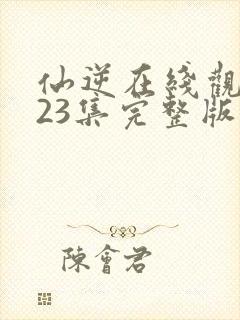 仙逆在綫觀
23集完整版
陳會君